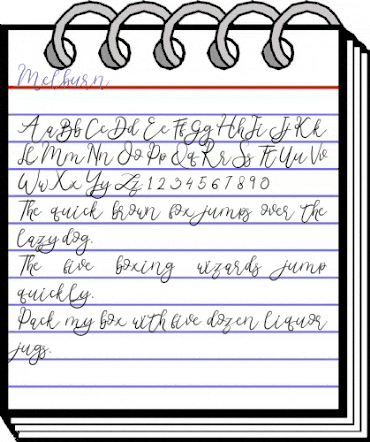 Melburn
Aa Bb Cc Dd Ee Ff Gg Hh Ii Jj Kk
Ll Mm Nn Oo Pp Qq Rr Ss Tt Uu Vv
Ww Xx Yy Zz 1 2 3 4 5 6 7 8 9 0
The quick brown fox jumps over the
lazy dog.
The five boxing wizards jump
quickly.
Pack my box with five dozen liquor
jugs.